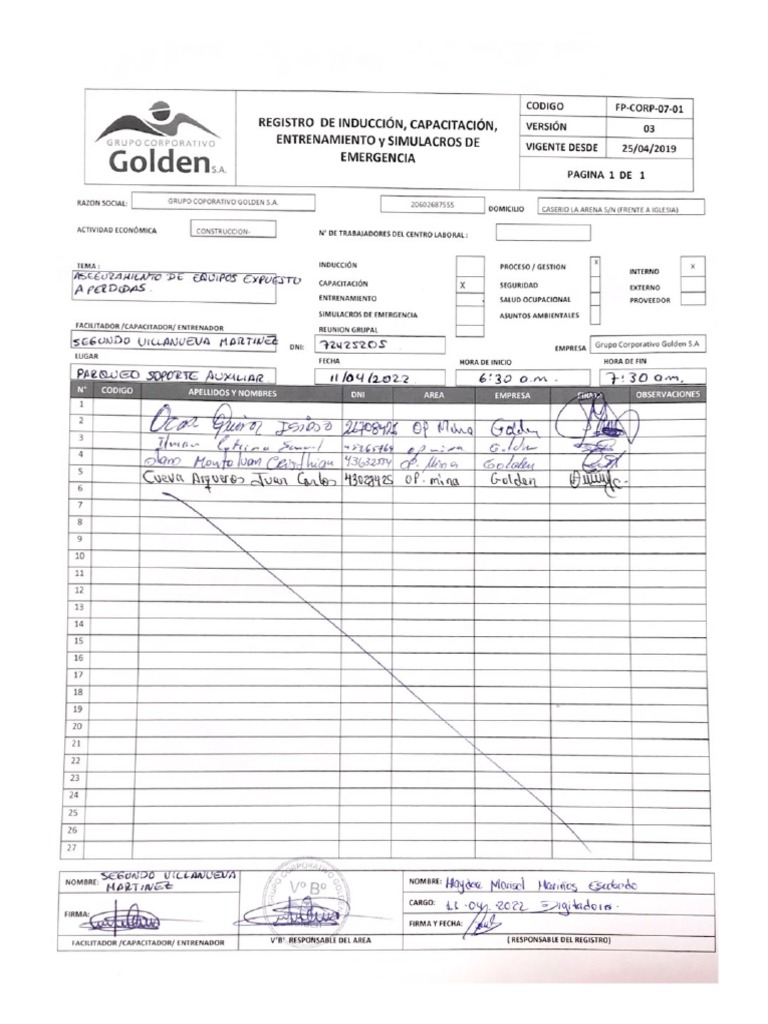 GRUPO CORPORATIVO
Golden S.A.
REGISTRO DE INDUCCIÓN, CAPACITACIÓN,
ENTRENAMIENTO y SIMULACROS DE
EMERGENCIA
CODIGO FP-CORP-07-01
VERSIÓN 03
VIGENTE DESDE 25/04/2019
PAGINA 1 DE 1
RAZON SOCIAL: GRUPO COPORATIVO GOLDEN S.A. 20602687555 DOMICILIO CASERIO LA ARENA S/N (FRENTE A IGLESIA)
ACTIVIDAD ECONÓMICA CONSTRUCCION- N° DE TRABAJADORES DEL CENTRO LABORAL :
TEMA :
ASEGURAMIENTO DE EQUIPOS EXPUESTO
A PERDIDAS.
INDUCCIÓN PROCESO / GESTION x INTERNO x
CAPACITACIÓN X SEGURIDAD EXTERNO
ENTRENAMIENTO SALUD OCUPACIONAL PROVEEDOR
SIMULACROS DE EMERGENCIA ASUNTOS AMBIENTALES
REUNION GRUPAL
FACILITADOR /CAPACITADOR/ ENTRENADOR
SEGUNDO VILLANUEVA MARTINEZ DNI: 72425205 EMPRESA Grupo Corporativo Golden S.A
LUGAR FECHA HORA DE INICIO HORA DE FIN
PARQUEO SOPORTE AUXILIAR 11/04/2022 6:30 a.m. 7:30 a.m.
N° CODIGO APELLIDOS Y NOMBRES DNI AREA EMPRESA FIRMA OBSERVACIONES
1
2 OP Mina Golden
3 op mina Golden
4 43632554 OP. Mina Golden
5 Cueva Arqueros Juan Carlos 43029425 OP. mina Golden
6
7
8
9
10
11
12
13
14
15
16
17
18
19
20
21
22
23
24
25
26
27
NOMBRE: SEGUNDO VILLANUEVA
MARTINEZ
FIRMA:
FACILITADOR /CAPACITADOR/ ENTRENADOR
GRUPO CORPORATIVO GOLDEN
V° B°
V°B° RESPONSABLE DEL AREA
NOMBRE: Haydee Marisol Mariños Escobedo
CARGO: 11-04-2022 Digitadora.
FIRMA Y FECHA:
( RESPONSABLE DEL REGISTRO)